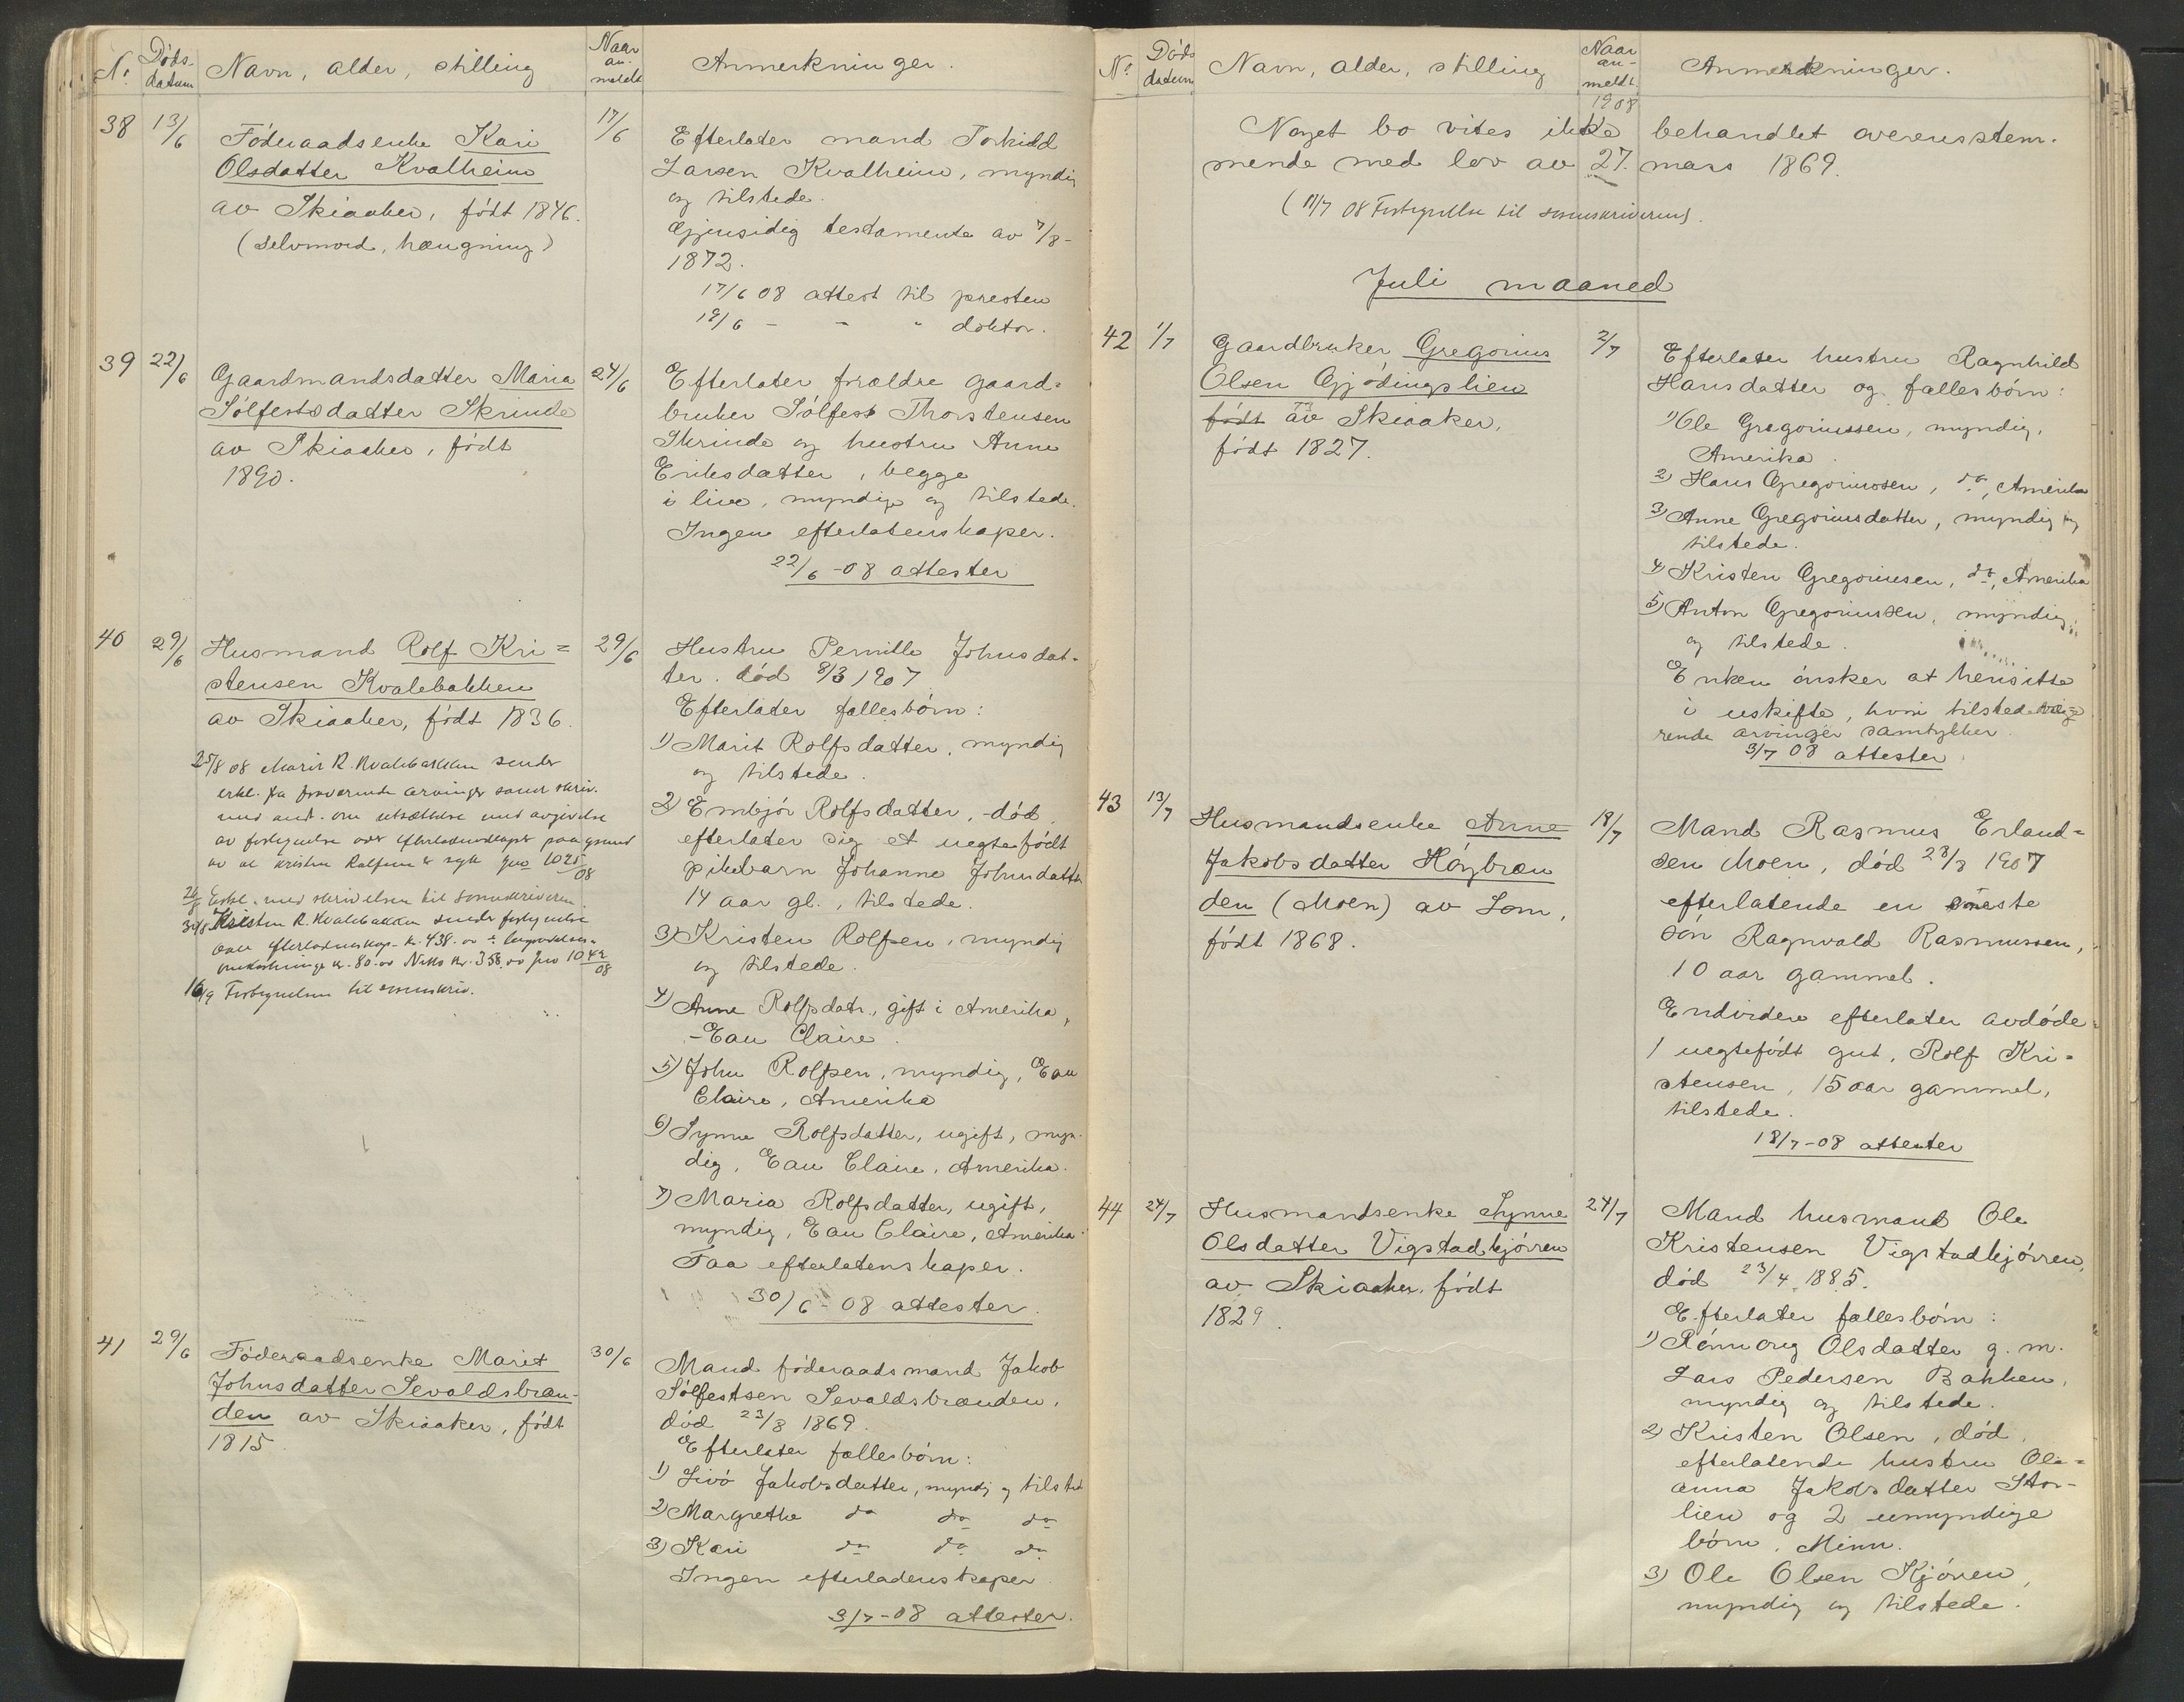 No Døds-datum Navn, alder, stilling Naar an-meldt Anmerkninger.
38 13/6 Föderaadsenke Kari
Olsdatter Kvalheim
av Skiaaker, født 1846.
(selvmord, hængning)
17/6 Efterlater mand Torkild
Larsen Kvalheim, myndig
og tilstede.
Gjensidig testamente av 7/8-
1872.
17/6 08 attest til presten
19/6 - - " doktor.
39 22/6 Gaardmandsdatter Maria
Sölfestsdatter Skrinde
av Skiaaker, født
1890.
24/6 Efterlater forældre gaard=
bruker Sölfest Thorstensen
Skrinde og hustru Anne
Eriksdatter, begge
i live, myndige og tilstede.
Ingen efterlatenskaper.
22/6-08 attester
40 29/6 Husmand Rolf Kri=
stensen Kvalebakken
av Skiaaker, født 1836.
25/8 08 Marit R. Kvalebakken sender
erkl. fra fraværende arvinger samt skriv.
med and. om utsættelse med avgivelse
av fortegnelse over efterladenskapet paa grund
av at Kristen Rolfsen er syk Jno 1025/08
26/8 Erkl. med skrivelsen til sorenskriveren.
31/8 Kristen R. Kvalebakken sender fortegnelse
over efterladenskap kr. 438.00 ÷ begravelses-
omkostninger kr. 80.00 Netto kr. 358.00 Jno 1042/08
16/9 Fortegnelsen til sorenskriv.
29/6 Hustru Pernille Johnsdat-
ter. død 8/3 1907
Efterlater fællesbörn:
1) Marit Rolfsdatter, myndig
og tilstede.
2) Embjör Rolfsdatter, død,
efterlater sig et uegtefödt
pikebarn Johanne Johnsdatter
14 aar gl., tilstede.
3) Kristen Rolfsen, myndig
og tilstede.
4) Anne Rolfsdatr., gift i Amerika,
-Eau Claire.
5) John Rolfsen, myndig, Eau
Claire, Amerika
6) Synne Rolfsdatter, ugift, myn-
dig, Eau Claire, Amerika.
7) Maria Rolfsdatter, ugift,
myndig, Eau Claire, Amerika.
Faa efterlatenskaper.
30/6-08 attester.
41 29/6 Föderaadsenke Marit
Johnsdatter Sevaldsbræn-
den av Skiaaker, født
1815.
30/6 Mand föderaadsmand Jakob
Sölfestsen Sevaldsbrænden,
død 23/8 1869.
Efterlater fællesbörn:
1) Livö Jakobsdatter, myndig og tilsted
2) Margrethe do do do
3) Kari do do do
Ingen efterladenskaper
3/7-08 attester.
No Døds datum Navn, alder, stilling Naar an-meldt. 1908 Anmerkninger.
Noget bo vites ikke behandlet overensstem-
mende med lov av 27. mars 1869.
(11/7 08 Fortegnelse til sorenskriveren).
Juli maaned
42 1/7 Gaardbruker Gregorius
Olsen Gjödingslien
født av Skiaaker,
født 1827.
2/7 Efterlater hustru Ragnhild
Hansdatter og fællesbörn:
1) Ole Gregoriussen, myndig,
Amerika.
2) Hans Gregoriussen, do, Amerika
3) Anne Gregoriusdatter, myndig og
tilstede.
4) Kristen Gregoriusen, do, Amerika
5) Anton Gregoriussen, myndig
og tilstede.
Enken önsker at hensitte
i uskifte, hvori tilstedevæ=
rende arvinger samtykker.
3/7 08 attester
43 13/7 Husmandsenke Anne
Jakobsdatter Höybræn
den (Moen) av Lom,
født 1868.
18/7 Mand Rasmus Erland=
sen Moen, død 28/3 1907
efterlatende en eneste
sön Ragnvald Rasmussen,
10 aar gammel.
Endvidere efterlater avdøde
1 uegtefödt gut, Rolf Kri-
stensen, 15 aar gammel,
tilstede.
18/7-08 attester
44 24/7 Husmandsenke Synne
Olsdatter Vigstadkjörren
av Skiaaker, født
1829.
24/7 Mand husmand Ole
Kristensen Vigstadkjörren,
død 23/4 1885.
Efterlater fællesbörn:
1) Rönnoug Olsdatter g. m.
Lars Pedersen Bakken,
myndig og tilstede.
2) Kristen Olsen, død,
efterlatende hustru Ole=
anna Jakobsdatter Stor-
lien og 2 umyndige
börn, Minn.
3) Ole Olsen Kjörren,
myndig og tilstede.